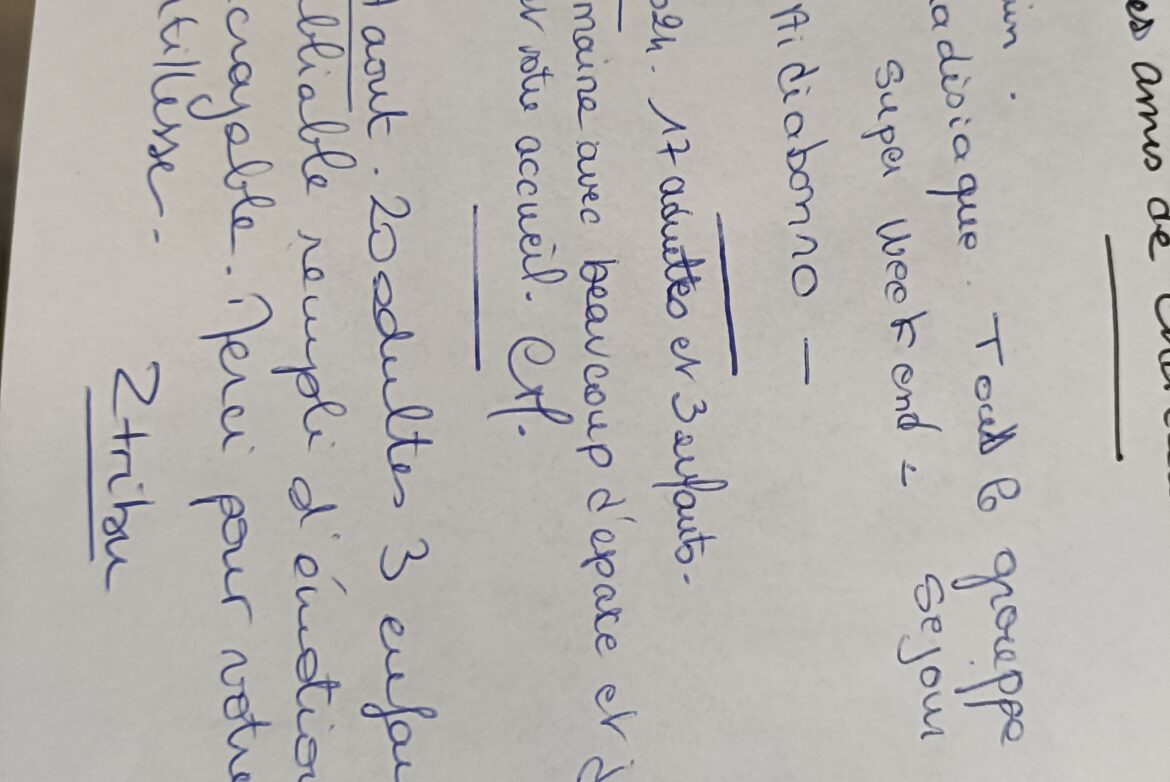 es amis de
uin. Tout le groupe
adisiaque. sejour
super week end -
024. 17 adultes et 3 enfants.
maine avec beaucoup d'espace et j
votre accueil.
aout. 20 adultes 3 enfan
bliable rempli d'émotion
croyable. Merci pour votre
ntillesse.
2 tribu